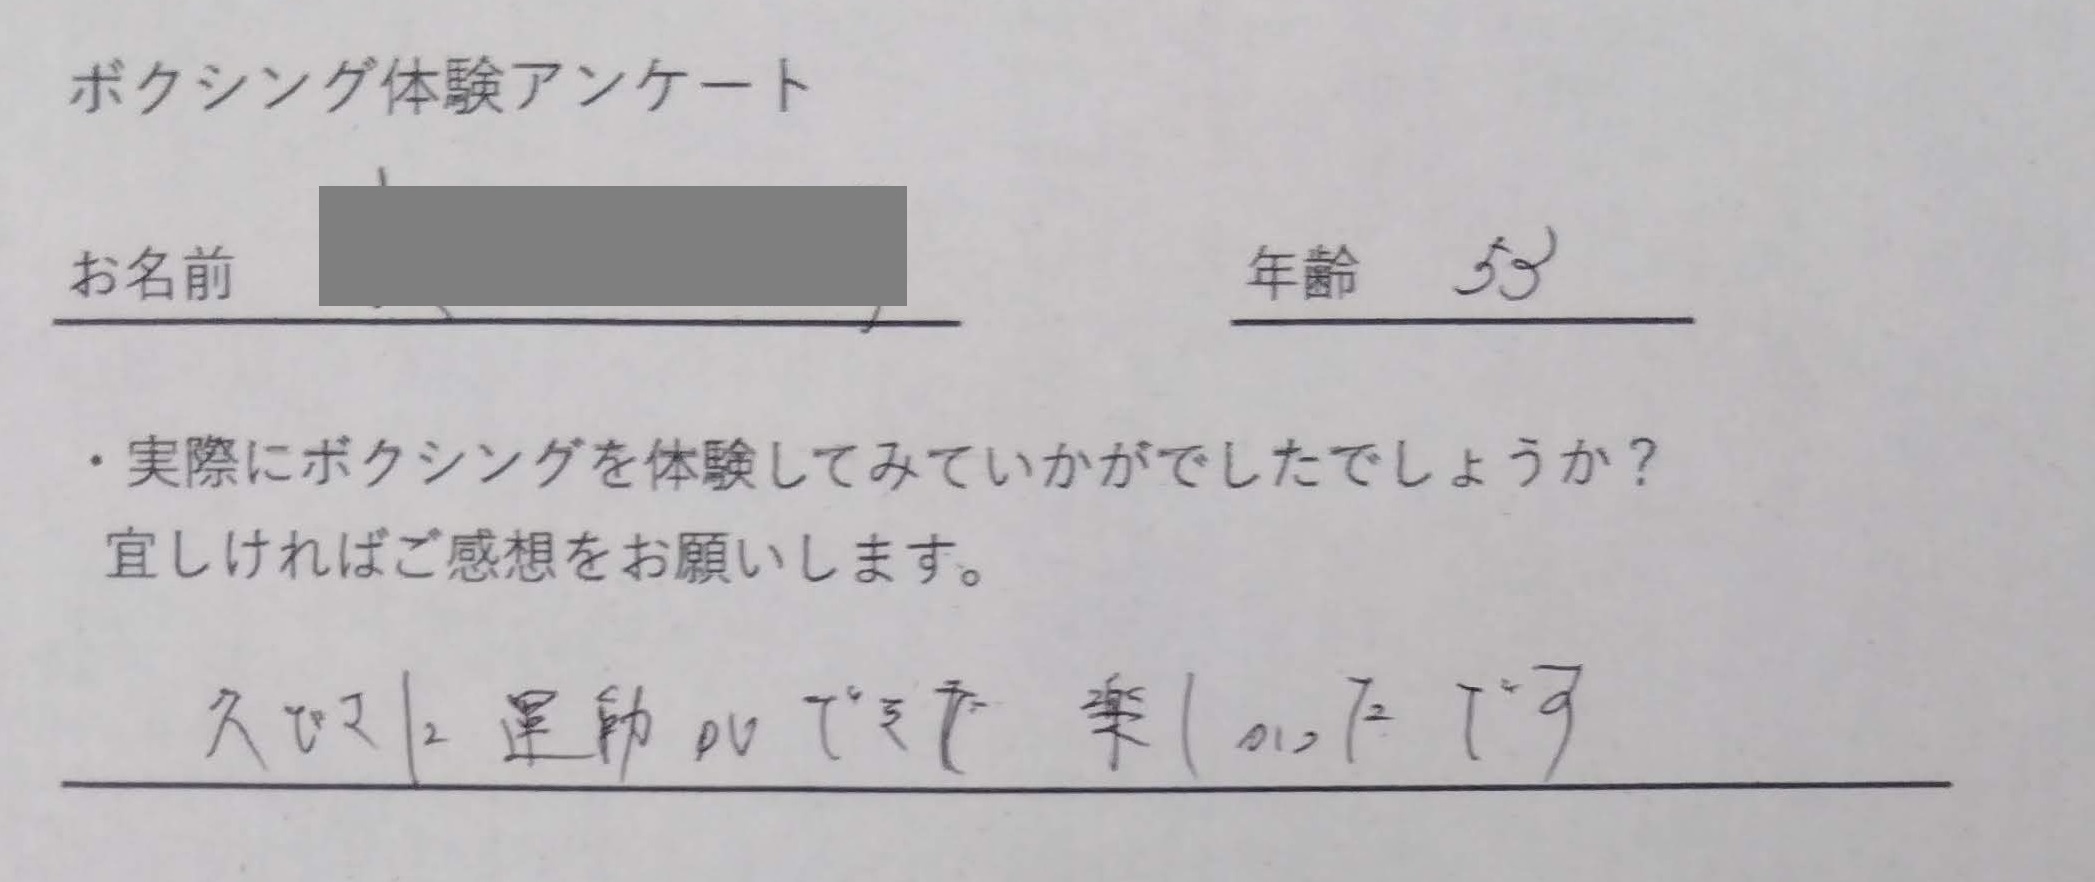 ボクシング体験アンケート
お名前 年齢 53
・実際にボクシングを体験してみていかがでしたでしょうか？
宜しければご感想をお願いします。
久びさに運動ができた 楽しかったです